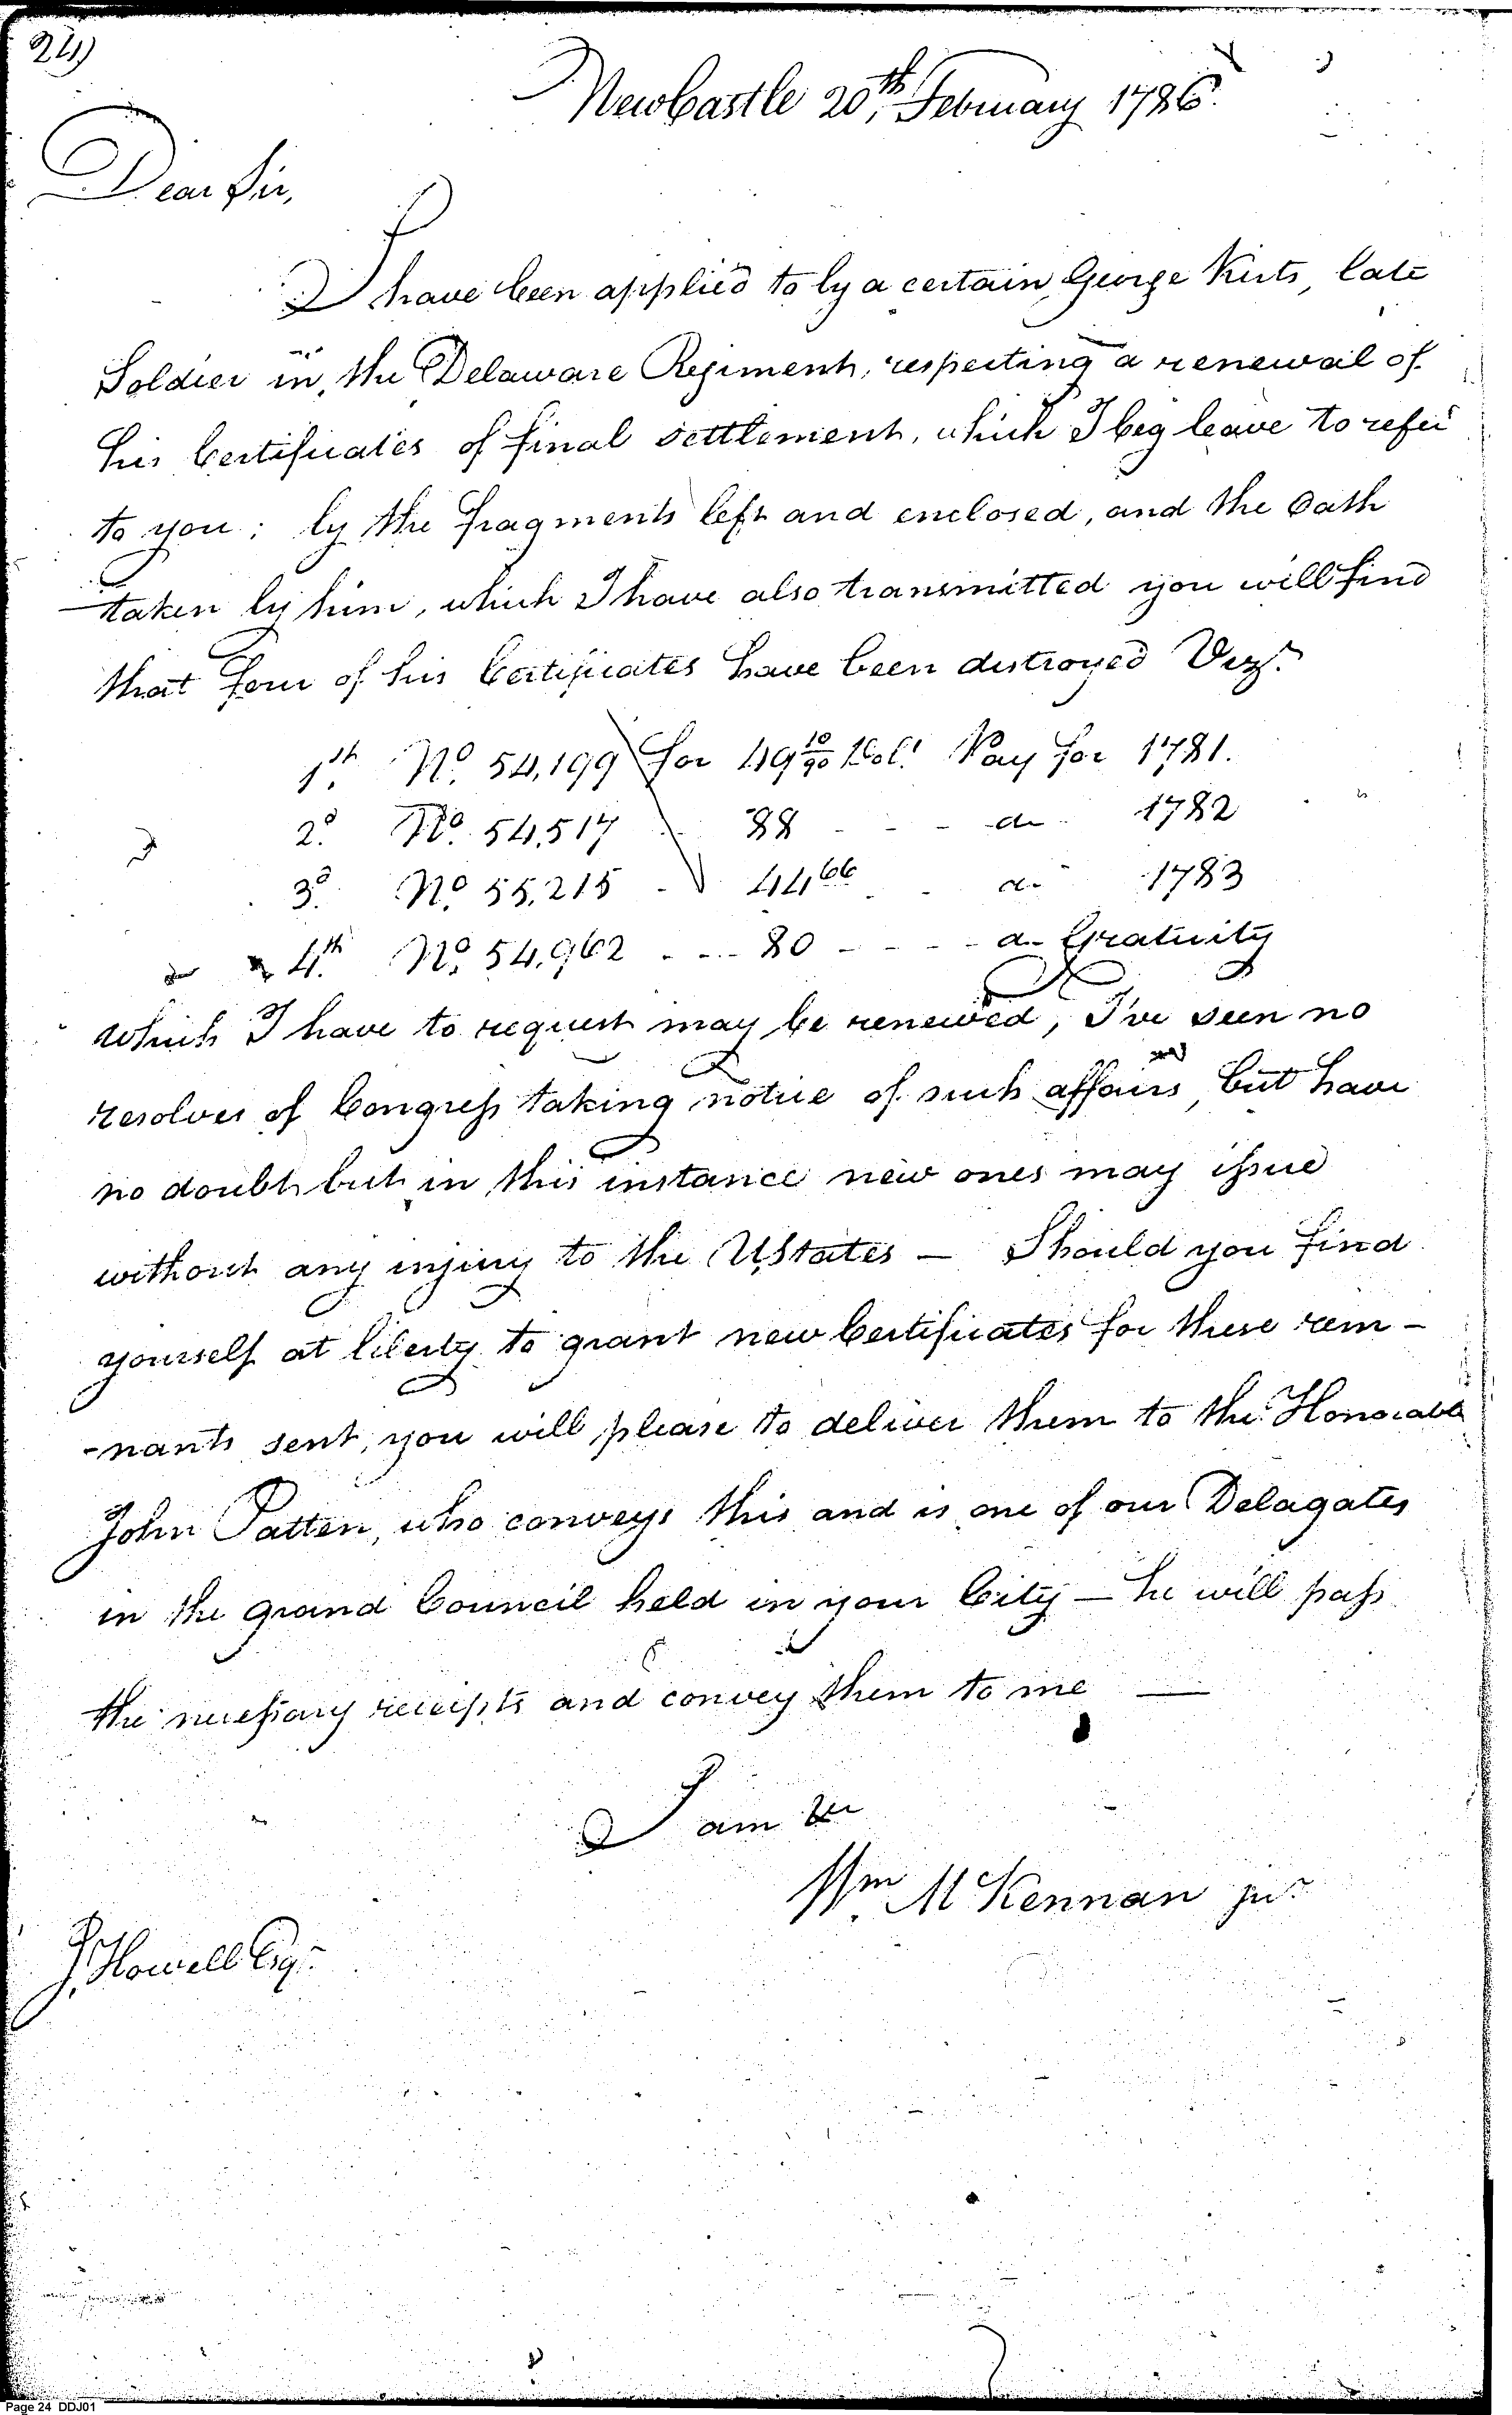 24)
NewCastle 20th February 1786.
Dear Sir,
I have been applied to by a certain George Kirts, late
Soldier in the Delaware Regiment, respecting a renewal of
his Certificates of final settlement, which I beg leave to refer
to you; by the fragments left and enclosed, and the Oath
taken by him, which I have also transmitted you will find
that four of his Certificates have been destroyed Vizt.
1st. No. 54,199 for 49 10/90 Dols. Pay for 1781.
2d. No. 54,517 88 - - - do 1782
3d. No. 55,215 - 44 66 - do 1783
4th. No. 54,962 - - - 80 - - - - do Gratuity
which I have to request may be renewed, I've seen no
resolves of Congress taking notice of such affairs, but have
no doubt but in this instance new ones may issue
without any injury to the UStates — Should you find
yourself at liberty to grant new Certificates for these rem-
-nants sent, you will please to deliver them to the Honorable
John Patten, who conveys this and is one of our Delagates
in the grand Council held in your City — he will pass
the necessary receipts and convey them to me —
I am &c
Wm. McKennan jur.
J. Howell Esqr.
Page 24 DDJ01